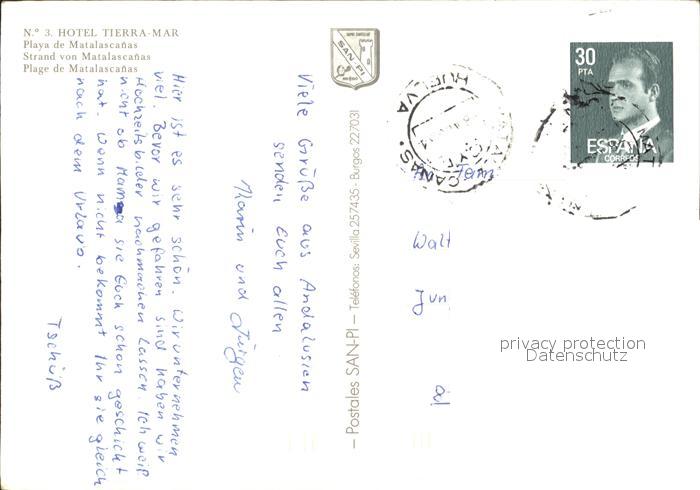 N.º 3. HOTEL TIERRA-MAR
Playa de Matalascañas
Strand von Matalascañas
Plage de Matalascañas
SAN-PI
Viele Grüße aus Andalusien
senden Euch allen
Karin und Jürgen
Hier ist es sehr schön. Wir unternehmen
viel. Bevor wir gefahren sind haben wir
Hochzeitsbilder nachmachen lassen. Ich weiß
nicht ob Mama sie Euch schon geschickt
hat. Wenn nicht bekommt Ihr sie gleich
nach dem Urlaub.
Tschüß
– Postales SAN-PI – Teléfonos: Sevilla 257435 - Burgos 227031
HUELVA
CAÑAS.
30
PTA
ESPAÑA
CORREOS
Fam
Walt
Jun
privacy protection
Datenschutz